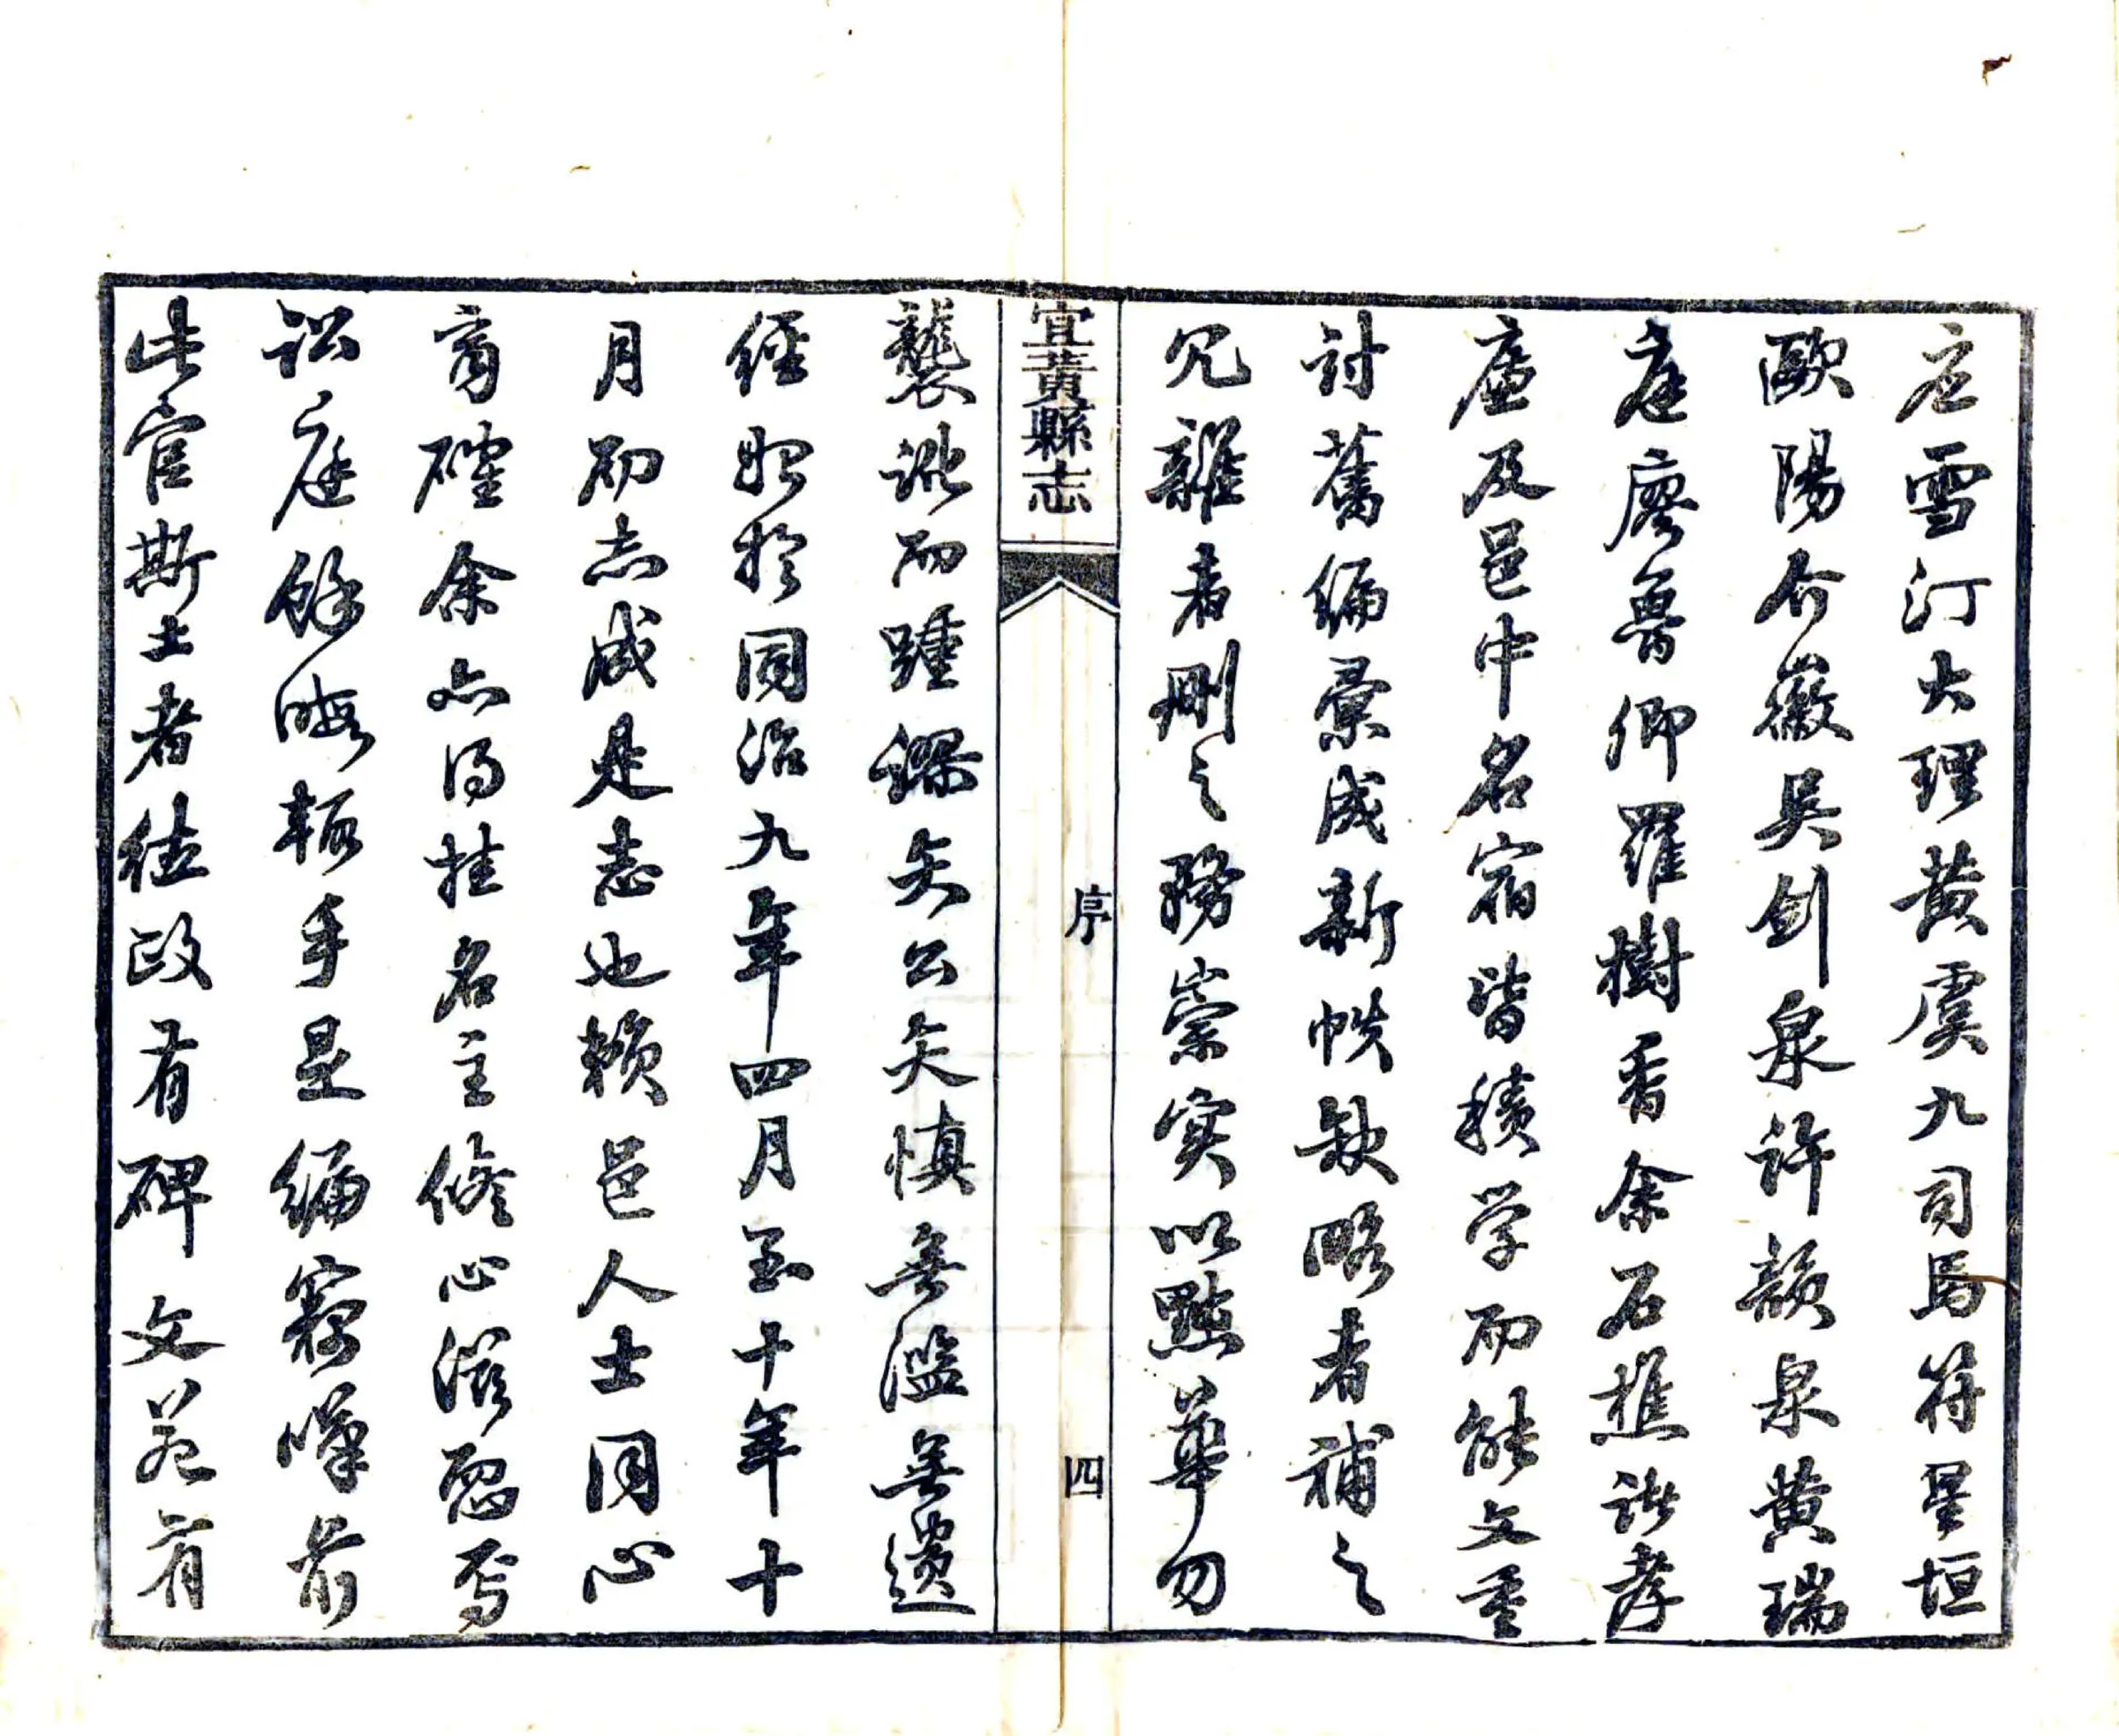 應雪汀大理黃虞九司馬符星垣
歐陽介薇吳劍泉許韻泉黃瑞
庭廖魯卿羅樹香余石樵諸孝
廉及邑中名宿皆積学而能文重
討舊編彙成新帙缺略者補之
冗雜者刪之務崇实以黜華勿
宜黃縣志
序
四
襲訛而踵謬矣公矣慎無濫無遺
經始於同治九年四月至十年十
月而志成是志也賴邑人士同心
商確余亦得挂名主修心滋恧焉
訟庭餘暇輒手是編竊嘆前
此官斯土者德政有碑文苑有